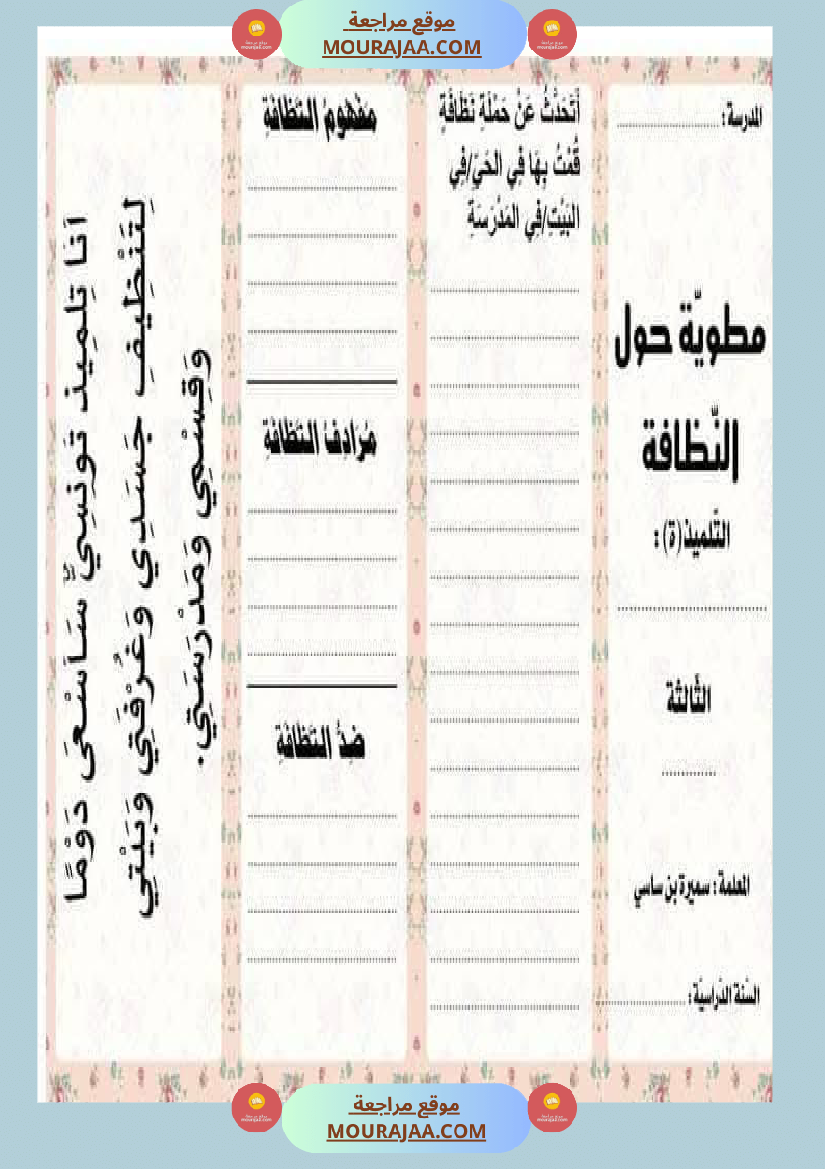 موقع مراجعة
MOURAJAA.COM
المدرسة : ........................
مطويّة حول
النّظافة
التّلميذ (ة) :
........................
الثّالثة
............
المعلمة : سميرة بن ساسي
السّنة الدّراسيّة : ........................
أَتَحَدَّثُ عَنْ حَمْلَةِ نَظَافَةٍ
قُمْتُ بِهَا فِي الْحَيِّ/فِي
البَيْتِ/فِي المَدْرَسَةِ
مَفْهُومُ النَّظَافَةِ
مُرَادِفُ النَّظَافَةِ
ضِدُّ النَّظَافَةِ
أَنَا تِلْمِيذ تُونِسِيٌّ سَأَسْعَى دَوْمًا
لِتَنْظِيفِ جَسَدِي وَغُرْفَتِي وَبَيْتِي
وَقِسْمِي وَمَدْرَسَتِي.
موقع مراجعة
MOURAJAA.COM